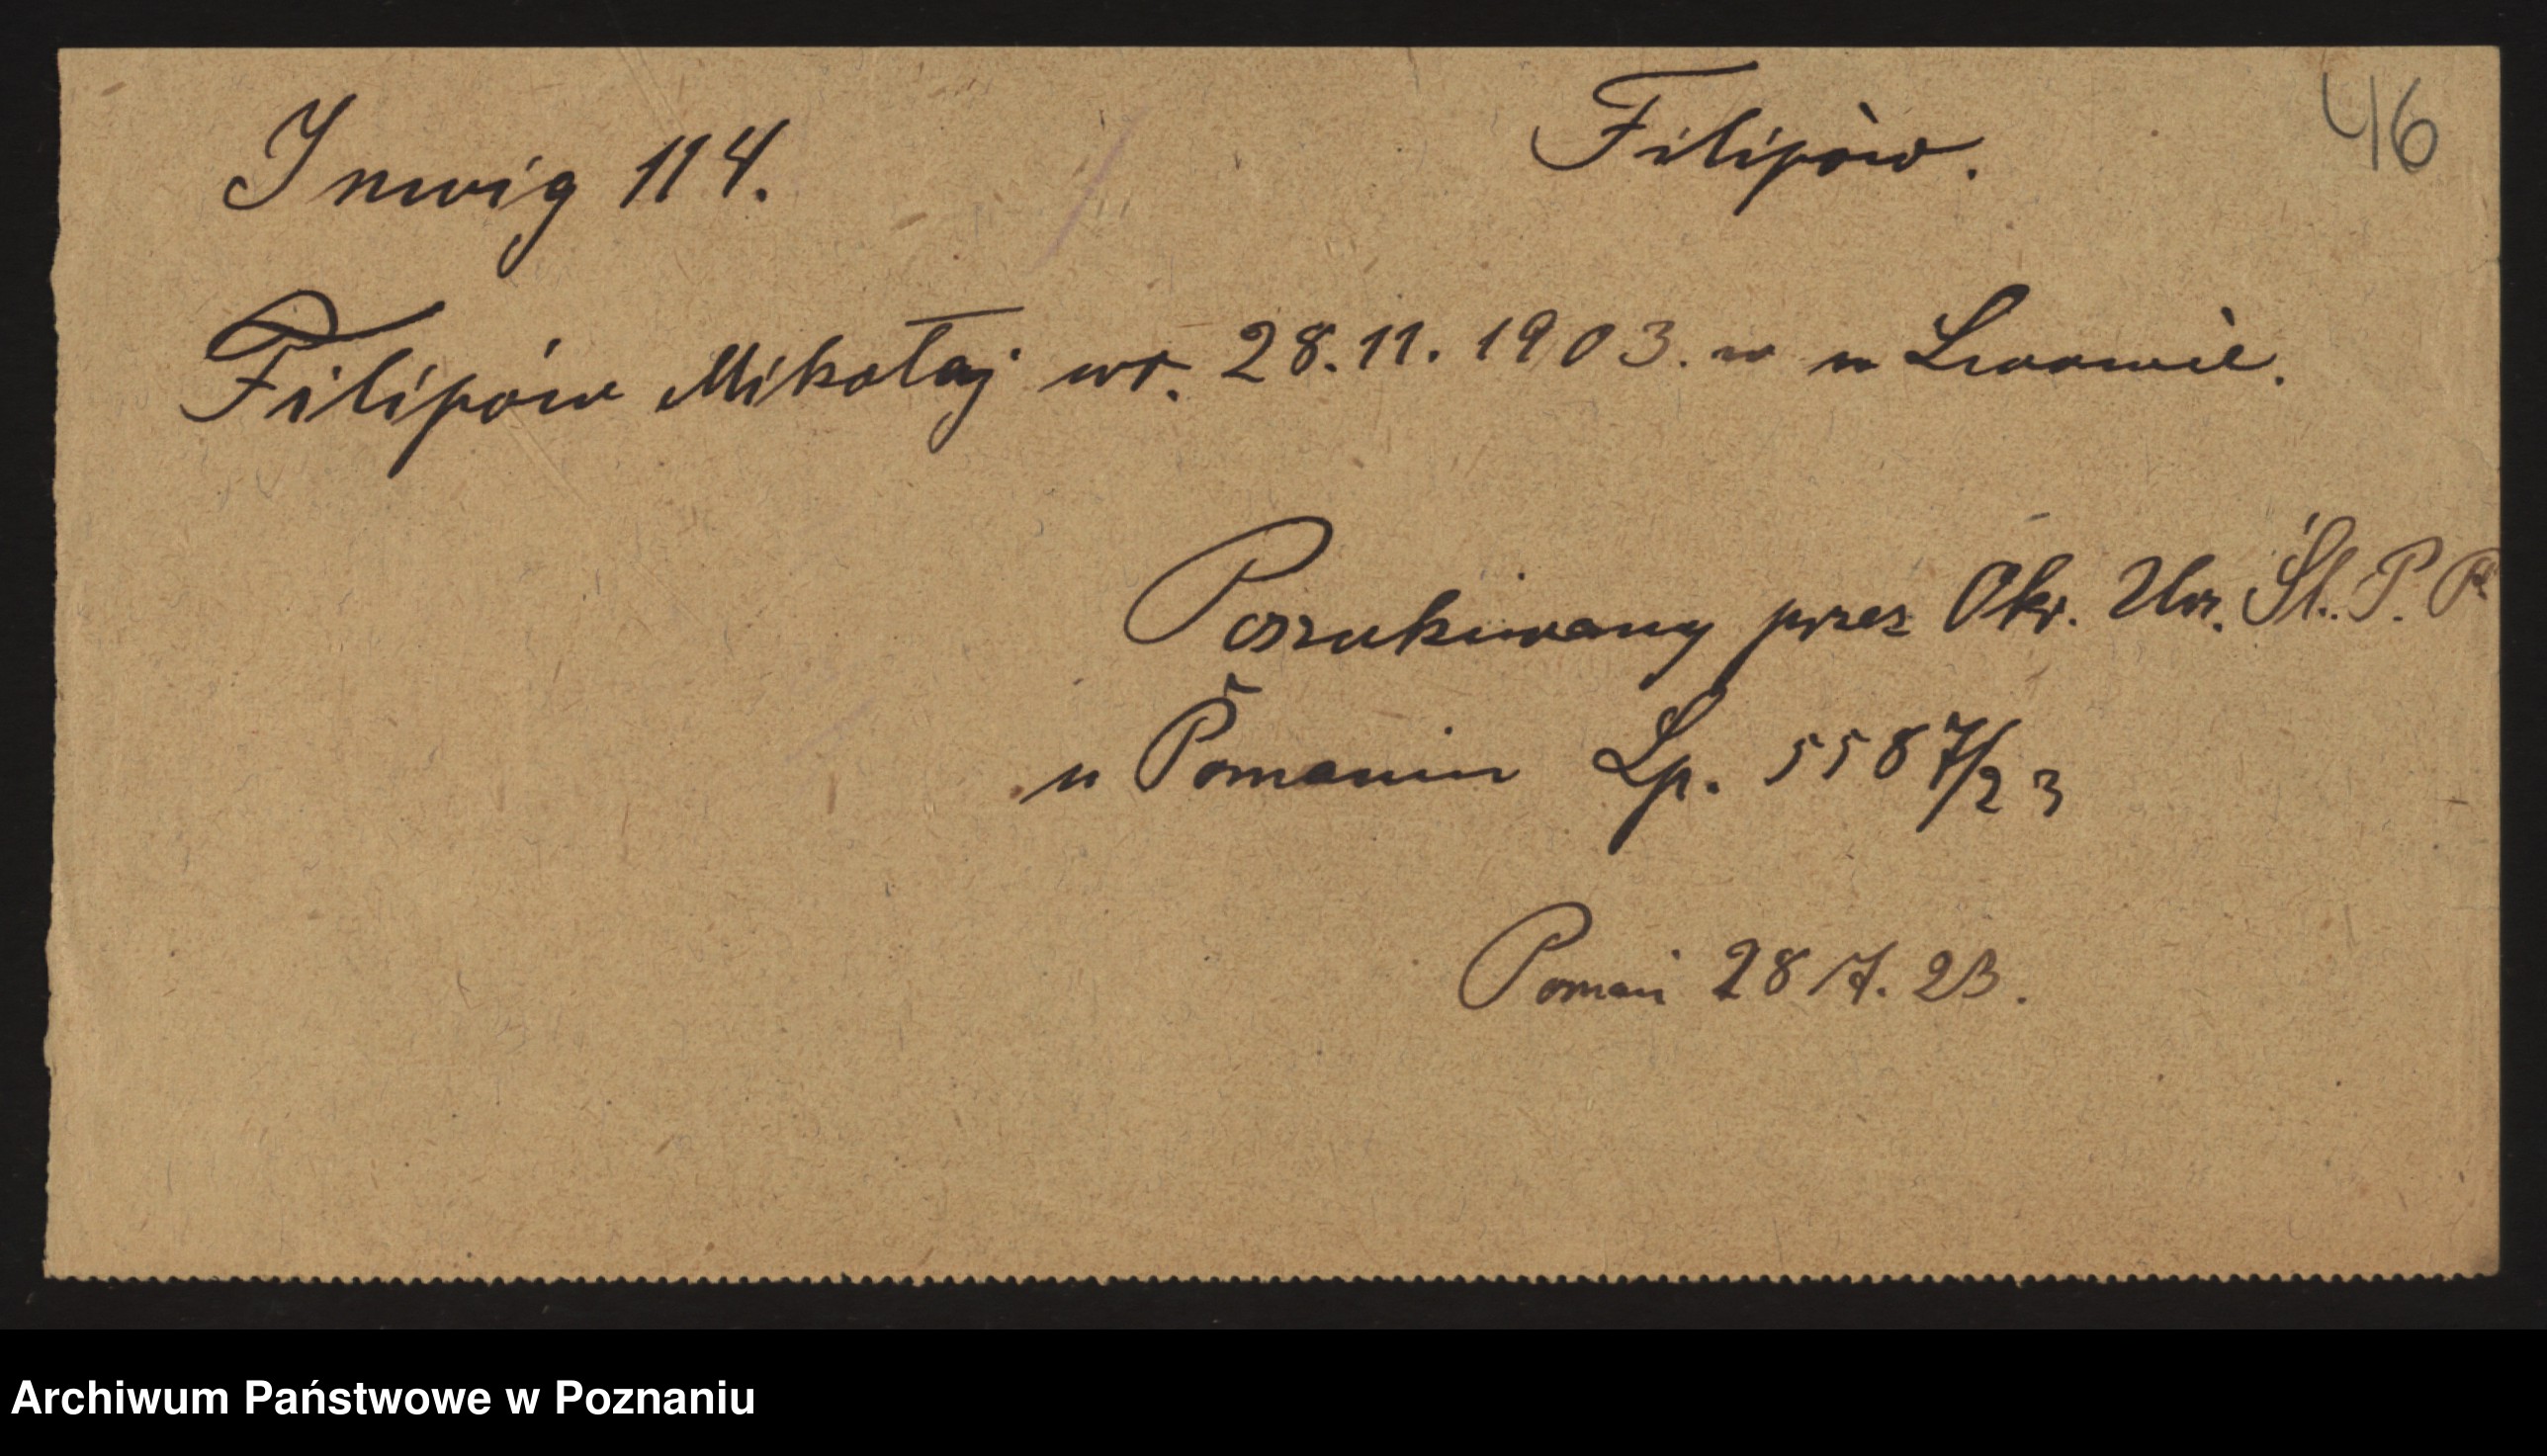 Inwig 114. Filipów. 46
Filipów Mikołaj ur. 28.11.1903. w w Lwowie.
Poszukiwany przez Okr. Urz. Śl. P. P.
w Poznaniu Lp. 5587/23
Poznań 28 7. 23.
Archiwum Państwowe w Poznaniu